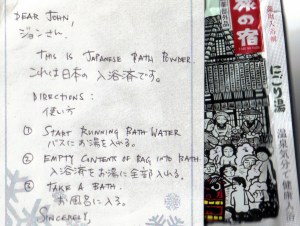 DEAR JOHN,
ジョンさん、
THIS IS JAPANESE BATH POWDER.
これは日本の入浴済です。
DIRECTIONS:
使い方
① START RUNNING BATH WATER
バスにお湯を入れる。
② EMPTY CONTENTS OF BAG INTO BATH
入浴済をお湯に全部入れる。
③ TAKE A BATH.
お風呂に入る。
SINCERELY,
旅の宿
にごり湯
温泉気分で健康入浴